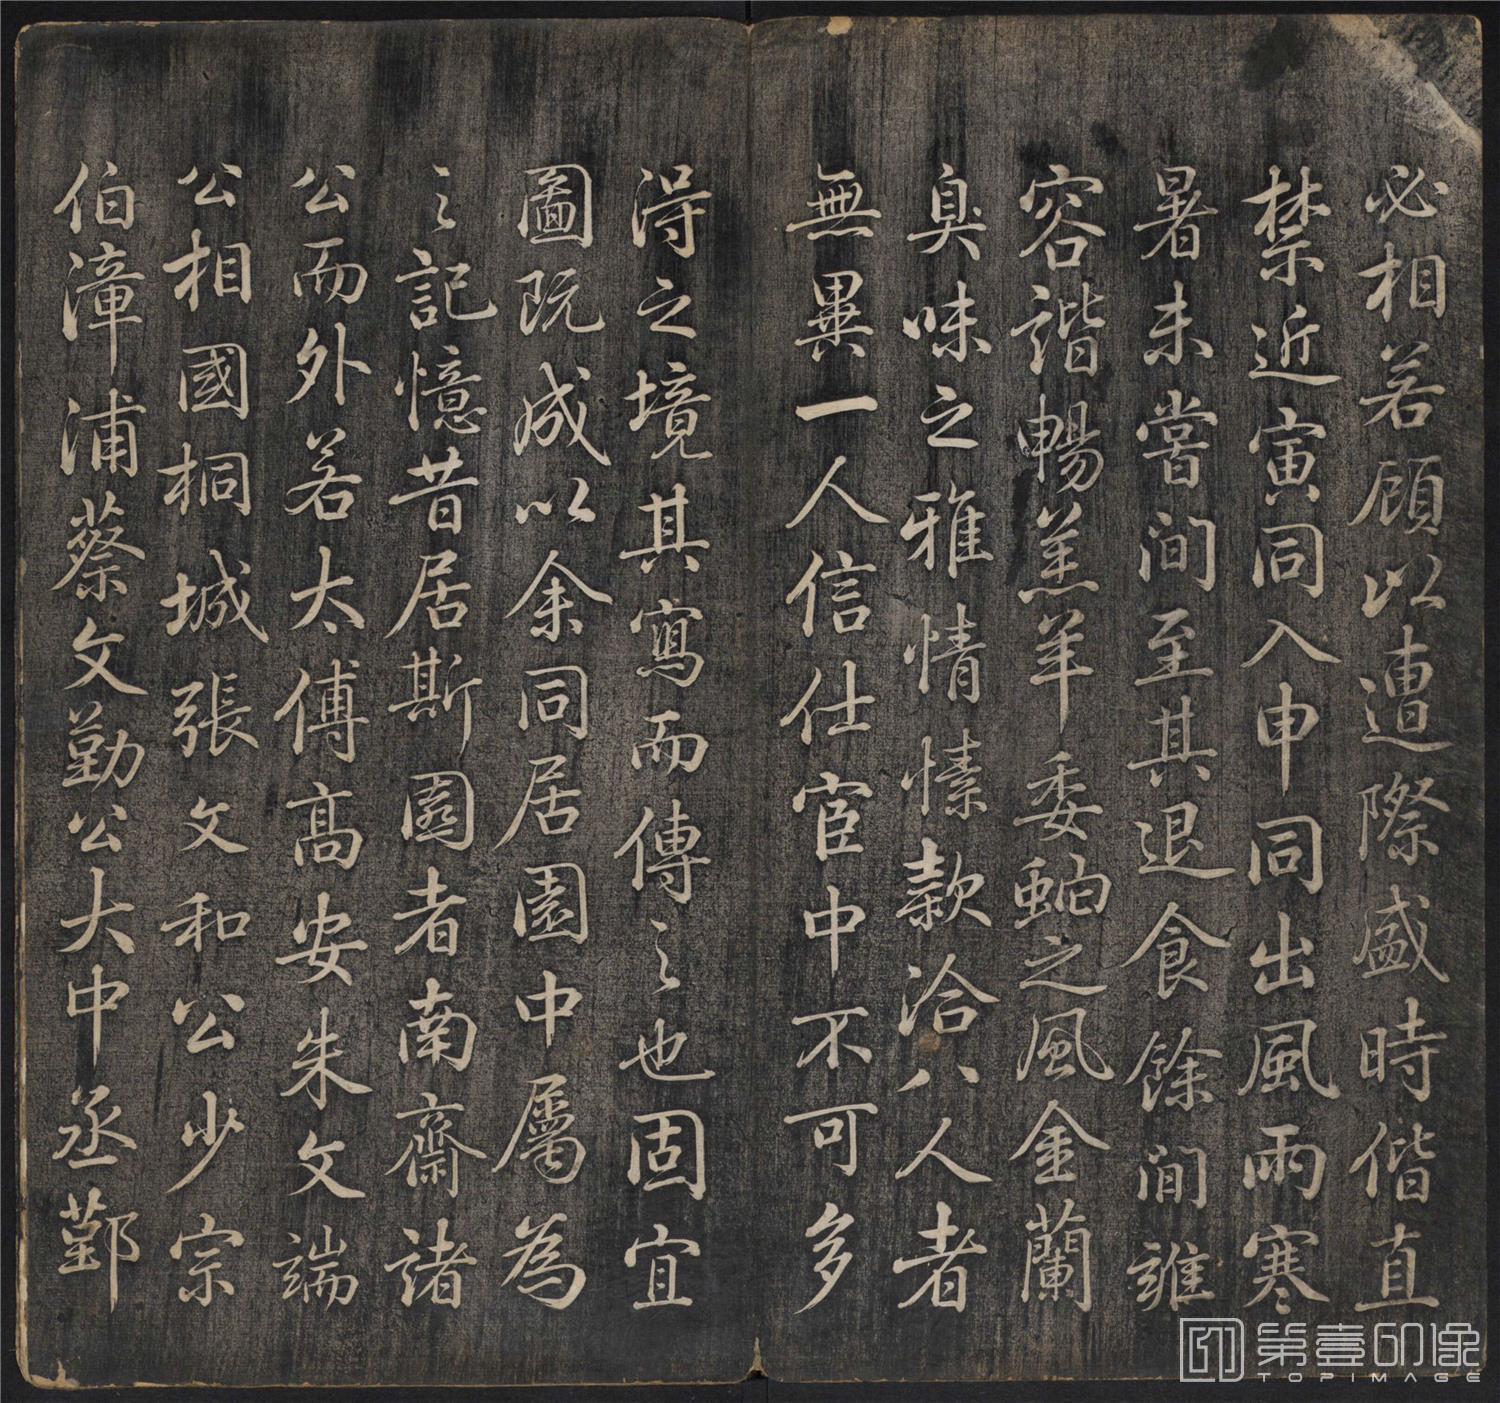 必相若顧以遭際盛時偕直
禁近寅同入申同出風雨寒
暑未嘗間至其退食餘間雍
容諧暢羔羊委蛇之風金蘭
臭味之雅情愫款洽八人者
無異一人信仕宦中不可多
得之境其寫而傳之也固宜
圖既成以余同居園中屬為
之記憶昔居斯園者南齋諸
公而外若太傅高安朱文端
公相國桐城張文和公少宗
伯漳浦蔡文勤公大中丞鄞
第壹印像
TOPIMAGE